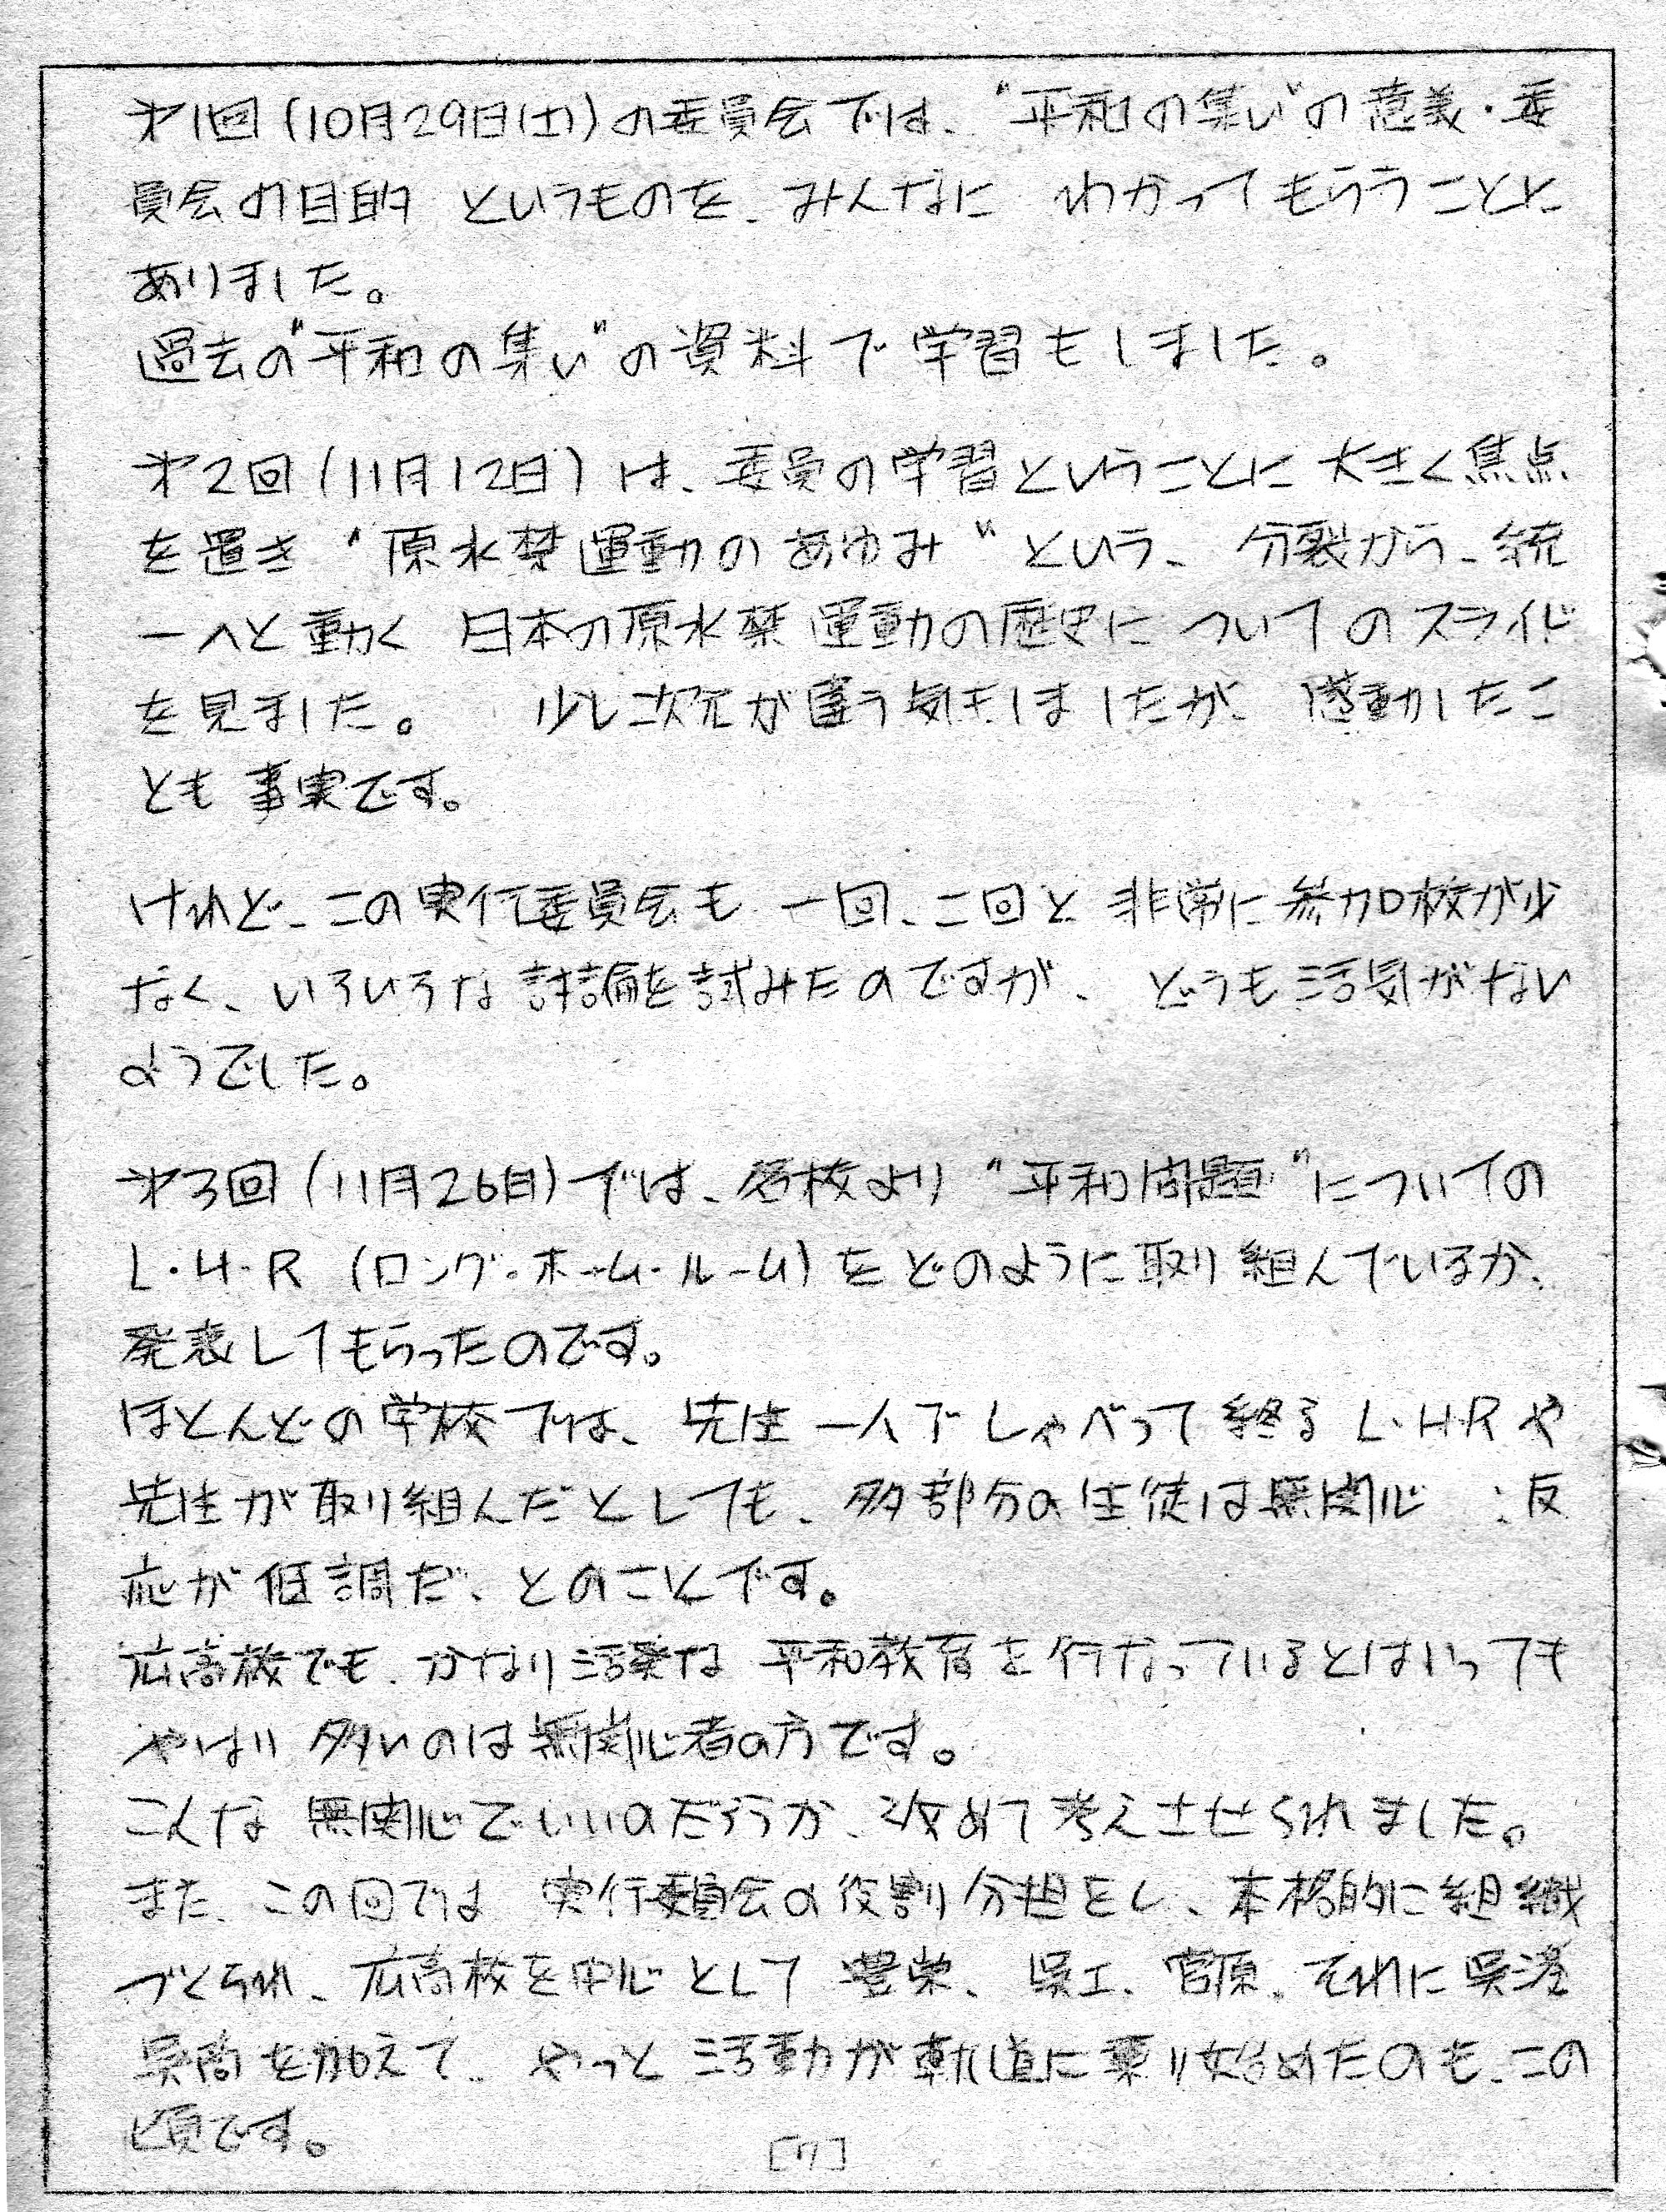 第1回(10月29日(土))の委員会では、“平和の集い”の意義・委
員会の目的 というものを、みんなに わかってもらうことに
ありました。
過去の“平和の集い”の資料で学習もしました。
第2回(11月12日)は、委員の学習ということに大きく焦点
を置き“原水禁運動のあゆみ”という、分裂から、統
一へと動く 日本の原水禁運動の歴史についてのスライド
を見ました。 少し次元が違う気もしましたが、感動したこ
とも事実です。
けれど、この実行委員会も 一回、二回と 非常に参加校が少
なく、いろいろな討論を試みたのですが、どうも活気がない
ようでした。
第3回(11月26日)では、各校より“平和問題”についての
L・H・R(ロング・ホーム・ルーム)をどのように取り組んでいるか、
発表してもらったのです。
ほとんどの学校では、先生一人でしゃべって終るL・H・Rや
先生が取り組んだとしても、多部分の生徒は無関心、反
応が低調だ、とのことです。
広高校でも、かなり活発な 平和教育を行なっているとはいっても
やはり 多いのは無関心者の方です。
こんな 無関心でいいのだろうか、改めて考えさせられました。
また、この回では 実行委員会の役割分担をし、本格的に組織
づくられ、広高校を中心として 豊栄、呉工、宮原、それに呉港
呉商を加えて、やっと 活動が軌道に乗り始めたのも、この
頃です。
[7]